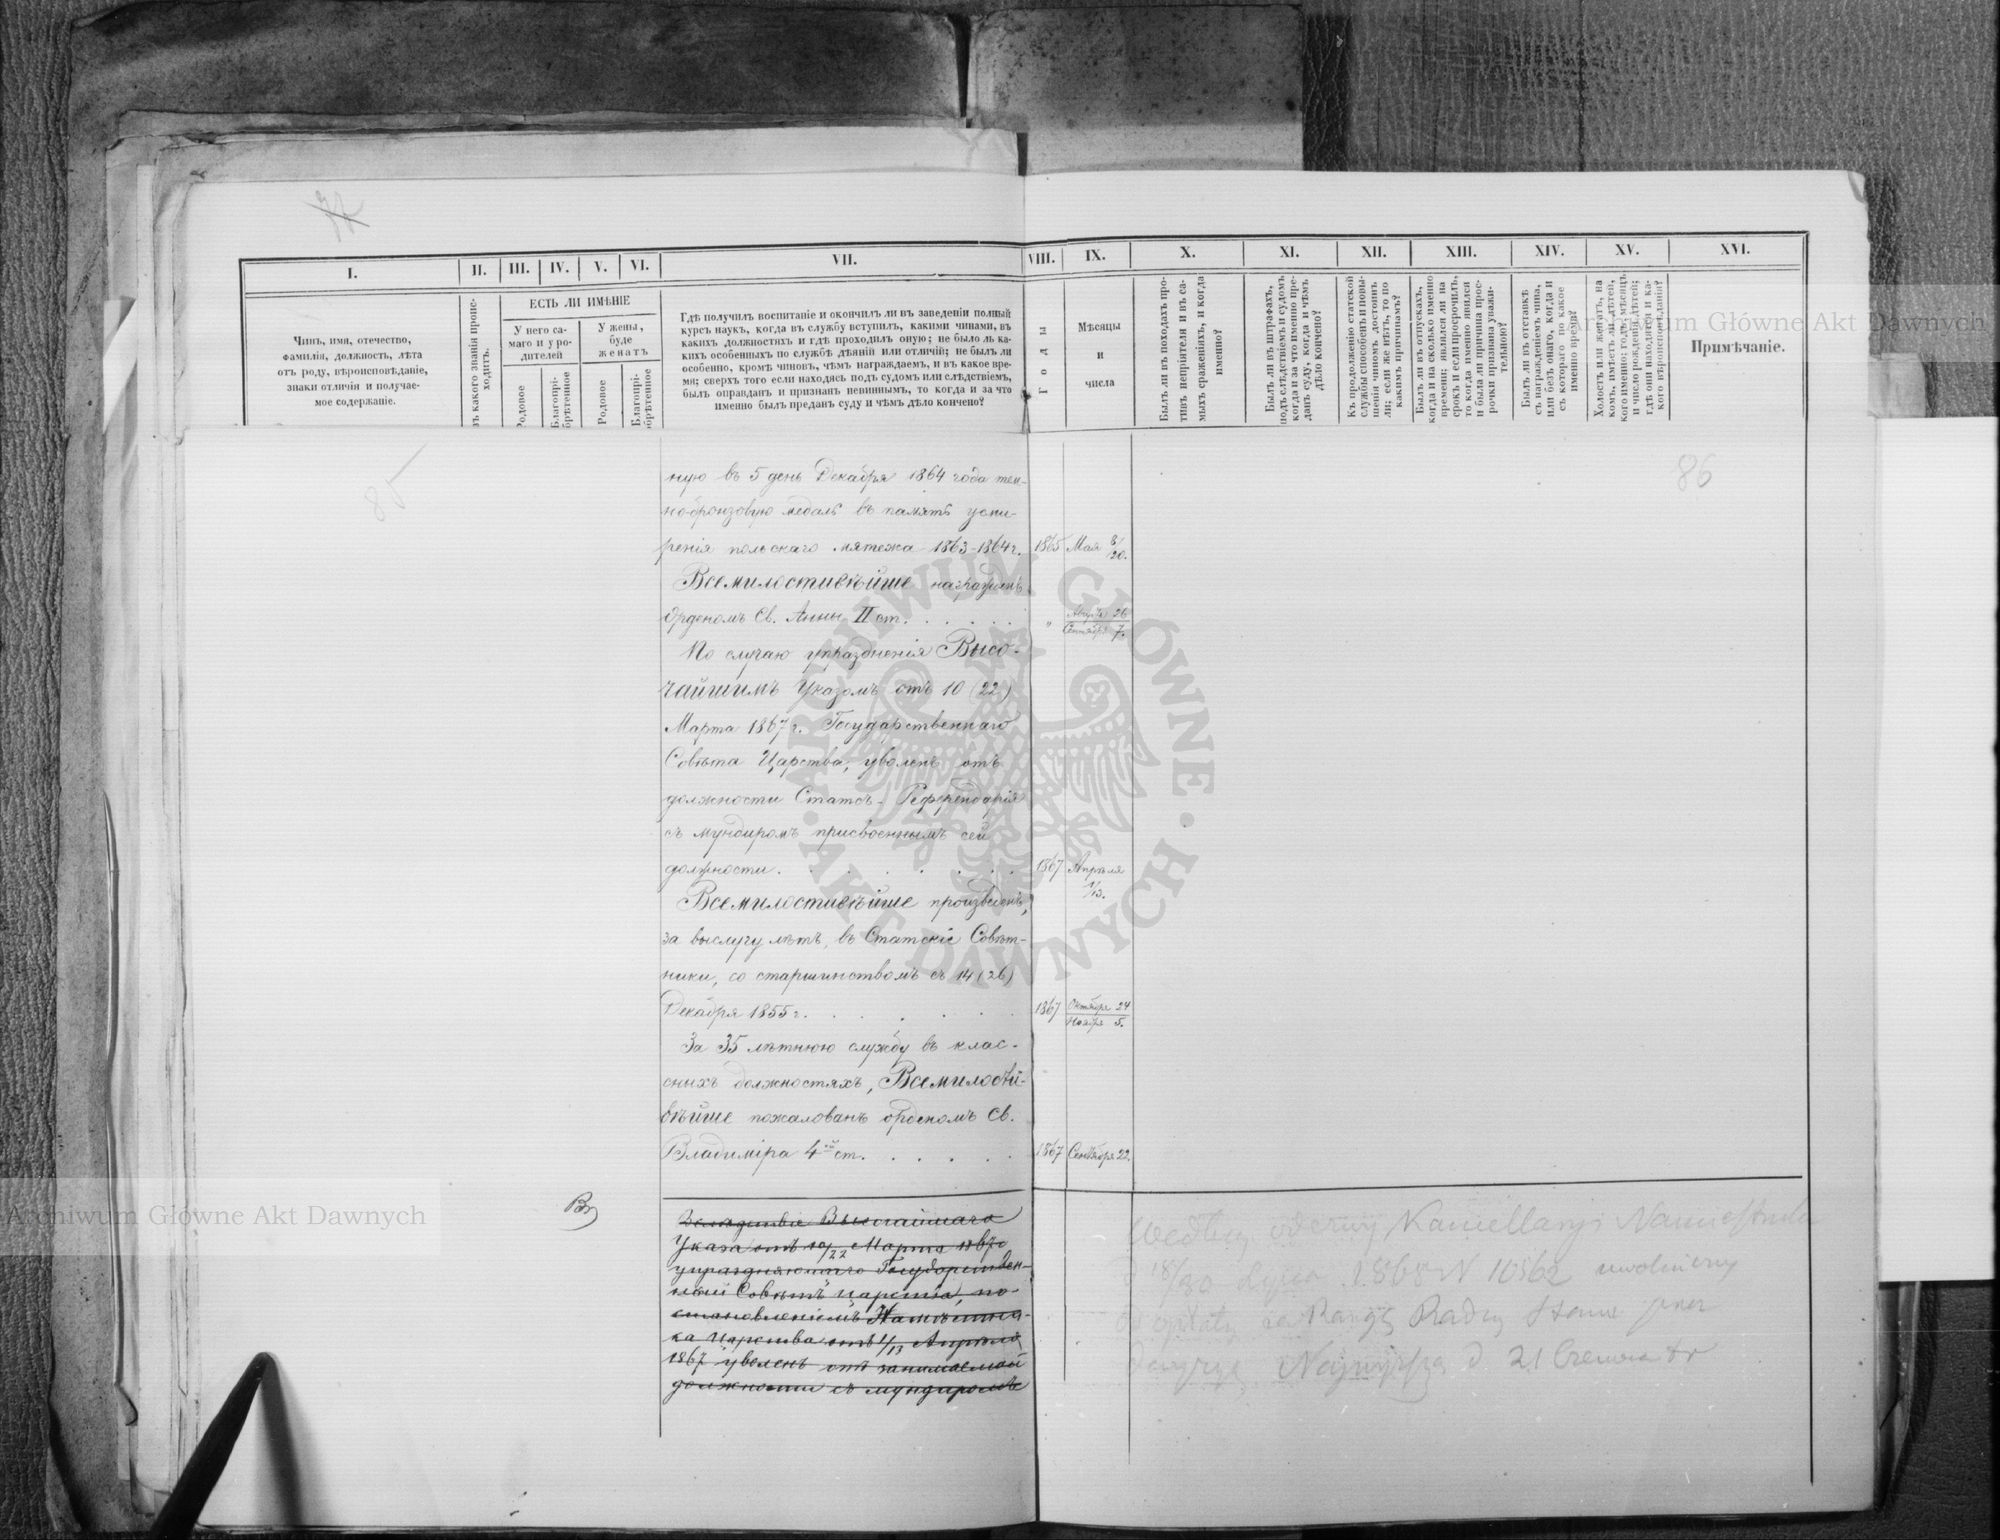 I.
II.
III.
IV.
V.
VI.
VII.
VIII.
IX.
X.
XI.
XII.
XIII.
XIV.
XV.
XVI.
Чинъ, имя, отечество,
фамилія, должность, лѣта
отъ роду, вѣроисповѣданіе,
знаки отличія и получае-
мое содержаніе.
зъ какого званія проис-
ходитъ.
ЕСТЬ ЛИ ИМѢНІЕ
У него са-
маго и у ро-
дителей
У жены,
буде
женатъ
Родовое
Благопрі-
обрѣтенное
Родовое
Благопрі-
обрѣтенное
Гдѣ получилъ воспитаніе и окончилъ ли въ заведеніи полный
курсъ наукъ, когда въ службу вступилъ, какими чинами, въ
какихъ должностяхъ и гдѣ проходилъ оную; не было ль ка-
кихъ особенныхъ по службѣ дѣяній или отличій; не былъ ли
особенно, кромѣ чиновъ, чѣмъ награждаемъ, и въ какое вре-
мя; сверхъ того если находясь подъ судомъ или слѣдствіемъ,
былъ оправданъ и признанъ невиннымъ, то когда и за что
именно былъ преданъ суду и чѣмъ дѣло кончено?
Годы
Мѣсяцы
и
числа
Былъ ли въ походахъ про-
тивъ непріятеля и въ са-
мыхъ сраженіяхъ, и когда
именно?
Былъ ли въ штрафахъ,
подъ слѣдствіемъ и судомъ
когда и за что именно пре-
данъ суду, когда и чѣмъ
дѣло кончено?
Къ продолженію статской
службы способенъ и повы-
шенія чиномъ достоинъ
ли; если же нѣтъ, то по
какимъ причинамъ?
Былъ ли въ отпускахъ,
когда и на сколько именно
времени; являлся ли на
срокъ и если просрочилъ,
то когда именно явился
и была ли причина прос-
рочки признана уважи-
тельною?
Былъ ли въ отставкѣ
съ награжденіемъ чина,
или безъ онаго, когда и
съ котораго по какое
именно время?
Холостъ или женатъ, на
комъ, имѣетъ ли дѣтей,
кого именно; годъ, мѣсяцъ
и число рожденія дѣтей;
гдѣ они находятся и ка-
кого вѣроисповѣданія?
Примѣчаніе.
85
86
ную въ 5 день Декабря 1864 года тем-
но-бронзовую медаль въ память усми-
ренія польскаго мятежа 1863-1864 г.
1865 Мая 8/20.
Всемилостивѣйше награжденъ
Орденомъ Св. Анны II ст. . . . . .
" Августа 26
Сентября 7.
По случаю упраздненія Высо-
чайшимъ Указомъ отъ 10 (22)
Марта 1867 г. Государственнаго
Совѣта Царства, уволенъ отъ
должности Статсъ-Референдарія
съ мундиромъ присвоеннымъ сей
должности. . . . . . . .
1867 Апрѣля
1/13.
Всемилостивѣйше произведенъ,
за выслугу лѣтъ, въ Статскіе Совѣт-
ники, со старшинствомъ съ 14 (26)
Декабря 1855 г. . . . . . .
1867 Октября 24
Ноября 5.
За 35 лѣтнюю службу въ клас-
сныхъ должностяхъ, Всемилости-
вѣйше пожалованъ орденомъ Св.
Владиміра 4ой ст. . . . . .
1867 Сентября 22.
Вслѣдствіе Высочайшаго
Указа отъ 10/22 Марта 1867 г
упраздняющаго Государствен-
ный Совѣтъ царства, по-
становленіемъ Намѣстни-
ка Царства отъ 1/13 Апрѣля
1867 уволенъ отъ занимаемой
должности съ мундиромъ
Według odezwy Kancellaryi Namiestnika
d 18/30 Lipca 1868 N 10562 uwolniony
od opłaty za Rangę Radcy Stanu przez
Najwyższą d 21 Czerwca
Archiwum Główne Akt Dawnych
Archiwum Główne Akt Dawnych
ARCHIWUM GŁÓWNE · AKT DAWNYCH ·